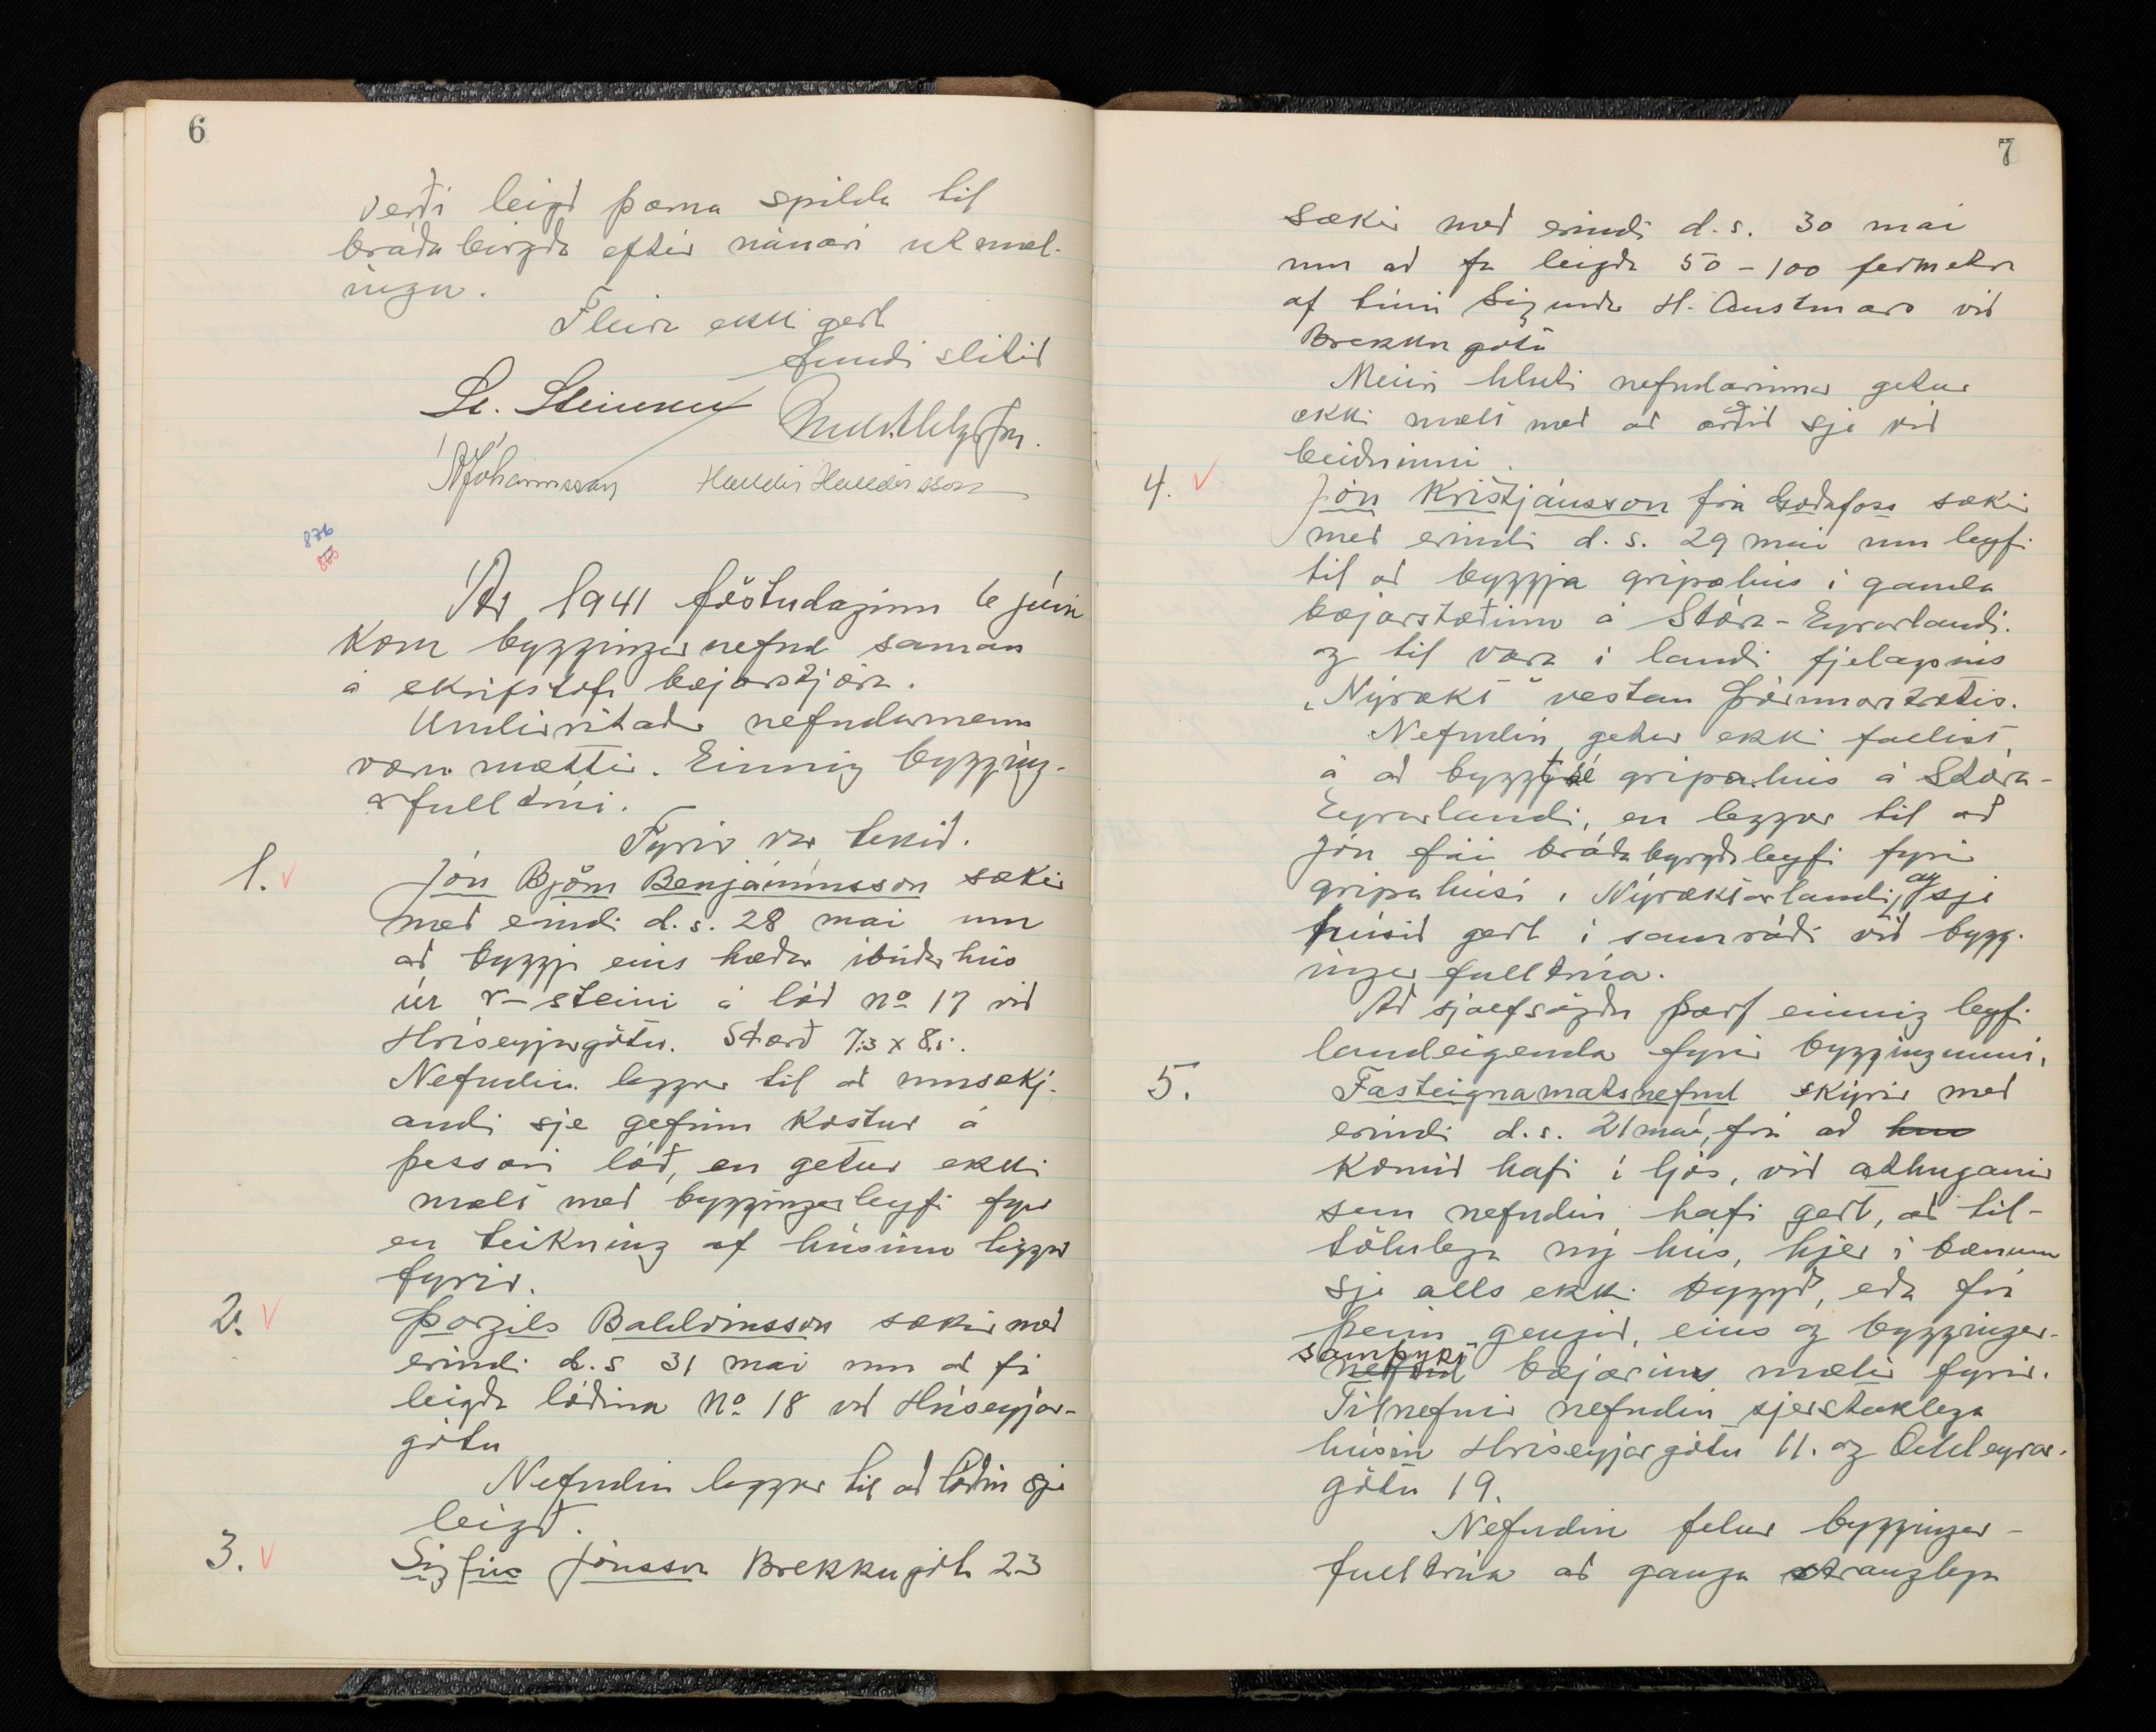 6
verði leigð þarna spilda til
bráðabirgða eftir nánari útmæl-
ingu.
Fleira ekki gert
fundi slitið
St. Steinsen
Halldór Halldórsson
876
Ár 1941 föstudaginn 6 júní
kom byggingarnefnd saman
á skrifstofu bæjarstjóra.
Undirritaðir nefndarmenn
voru mættir. Einnig bygging-
arfulltrúi.
Fyrir var tekið.
1. Jón Björn Benjamínsson sækir
með erindi d.s. 28 maí um
að byggja eins hæðar íbúðarhús
úr r-steini á lóð no 17 við
Hríseyjargötu. Stærð 7,3 x 8,5.
Nefndin leggur til að umsækj-
andi sje gefinn kostur á
þessari lóð, en getur ekki
mælt með byggingarleyfi fyr
en teikning af húsinu liggur
fyrir.
2. Þorgils Baldvinsson sækir með
erindi d.s 31 maí um að fá
leigða lóðina No 18 við Hríseyjar-
götu
Nefndin leggur til að lóðin sje
leigð.
3. Sigfús Jónsson Brekkugötu 23
7
sækir með erindi d.s. 30 maí
um að fá leigða 50-100 fermetra
af túni Sigurðar H. Austmars við
Brekkugötu
Meiri hluti nefndarinnar getur
ekki mælt með að orðið sje við
beiðninni.
4. Jón Kristjánsson frá Goðafoss sækir
með erindi d.s. 29 maí um leyfi
til að byggja gripahús í gamla
bæjarstæðinu á Stóra-Eyrarlandi.
og til vara í landi fjelagsins
"Nýrækt" vestan Þórunnarstrætis.
Nefndin getur ekki fallist
á að byggt sé gripahús á Stóra-
Eyrarlandi, en leggur til að
Jón fái bráðabyrgðaleyfi fyrir
gripahúsi í Nýræktarlandi, og sje
húsið gert í samráði við bygg-
ingarfulltrúa.
Að sjálfsögðu þarf einnig leyfi
landeigenda fyrir byggingunni.
5. Fasteignamatsnefnd skýrir með
erindi d.s. 21 maí, frá að
komið hafi í ljós, við athuganir
sem nefndin hafi gert, að til-
tölulega ný hús, hjer í bænum
sje alls ekki byggð, eða frá
þeim gengið, eins og byggingar-
samþykt nefnd bæjarins mælir fyrir.
Tilnefnir nefndin sjerstaklega
húsin Hríseyjargötu 11. og Oddeyrar-
götu 19.
Nefndin felur byggingar-
fulltrúa að ganga stranglega